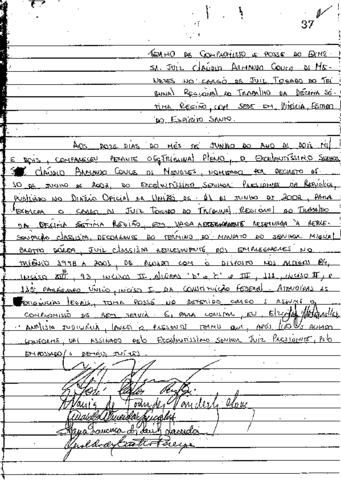 37
TERMO DE COMPROMISSO E POSSE DO EXMO
SR. JUIZ CLÁUDIO ARMANDO COUCE DE ME-
NEZES NO CARGO DE JUIZ TOGADO DO TRI
BUNAL REGIONAL DO TRABALHO DA DÉCIMA SÉ-
TIMA REGIÃO, COM SEDE EM VITÓRIA, ESTADO
DO ESPÍRITO SANTO.
AOS DOZE DIAS DO MÊS DE JUNHO DO ANO DE DOIS MIL
E DOIS, COMPARECEU PERANTE O EG. TRIBUNAL PLENO, O EXCELENTÍSSIMO SENHOR
CLÁUDIO ARMANDO COUCE DE MENEZES, NOMEADO POR DECRETO DE
10 DE JUNHO DE 2002, DO EXCELENTÍSSIMO SENHOR PRESIDENTE DA REPÚBLICA,
PUBLICADO NO DIÁRIO OFICIAL DA UNIÃO DE 11 DE JUNHO DE 2002, PARA
EXERCER O CARGO DE JUIZ TOGADO DO TRIBUNAL REGIONAL DO TRABALHO
DA DÉCIMA SÉTIMA REGIÃO, EM VAGA DESTINADA À REPRE-
SENTAÇÃO CLASSISTA, DECORRENTE DO TÉRMINO DO MANDATO DO SENHOR
JUIZ CLASSISTA REPRESENTANTE DOS EMPREGADORES NO
TRIÊNIO 1998 A 2001, DE ACORDO COM O DISPOSTO NOS ARTIGOS
INCISO 93, INCISO II, ALÍNEAS "B" E "C" E III, 111, INCISO II, E
PARÁGRAFO ÚNICO, INCISO I, DA CONSTITUIÇÃO FEDERAL. ATENDIDAS AS
EXIGÊNCIAS LEGAIS, TOMA POSSE NO REFERIDO CARGO E ASSUME O
COMPROMISSO DE BEM SERVIR. E, PARA CONSTAR, EU
ANALISTA JUDICIÁRIA, LAVREI O PRESENTE TERMO QUE, APÓS LIDO E ACHADO
CONFORME, VAI ASSINADO PELO EXCELENTÍSSIMO SENHOR JUIZ PRESIDENTE, PELO
EMPOSSADO E DEMAIS JUÍZES.